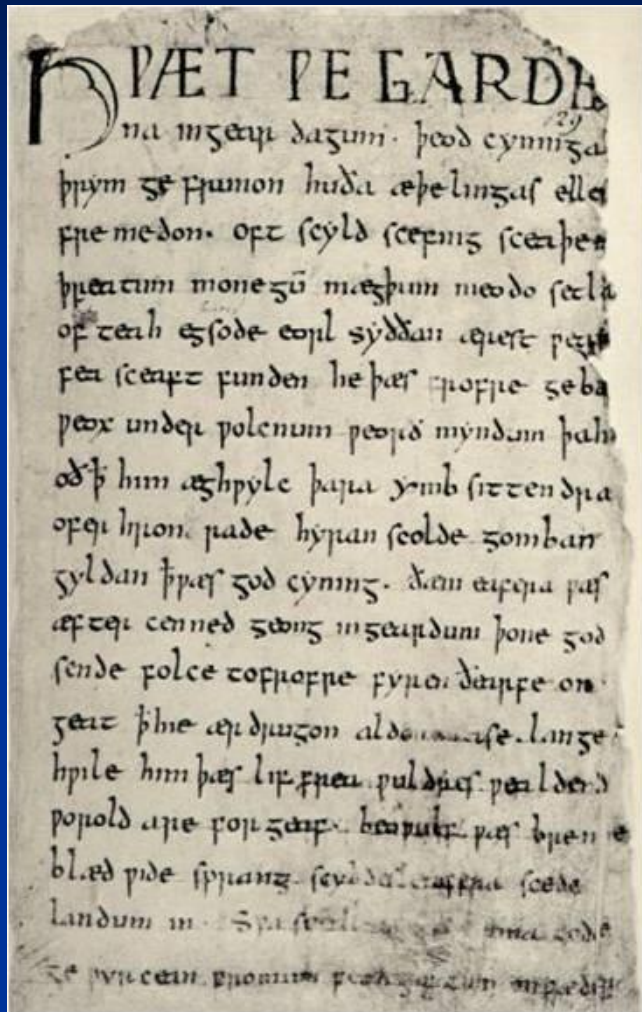 HǷÆT ǷE GARDE
na ingear dagum. þeod cyninga
þrym ge frunon huða æþelingas elle
fre medon. oft scyld scefing sceaþe
þreatum monegū mægþum meodo setla
of teah egsode eorl syððan ærest ƿear
fea sceaft funden he þæs frofre geba
ƿeox under ƿolcnum ƿeorð myndum þah
oð ꝥ him æghƿylc þara ymb sittendra
ofer hron rade hyran scolde gomban
gyldan ꝥ ƿæs god cyning. ðæm eafera ƿæs
æfter cenned geong ingeardum þone god
sende folce tofrofre fyren ðearfe on
geat ꝥ hie ær drugon aldor ase. lange
hƿile him þæs lif frea ƿuldres ƿealdend
ƿorold are for geaf. beoƿulf ƿæs breme
blæd ƿide sprang scyldes eafera scede
landum in. Sƿa sceal guma gode
ge ƿyrcean fromum feoh giftum